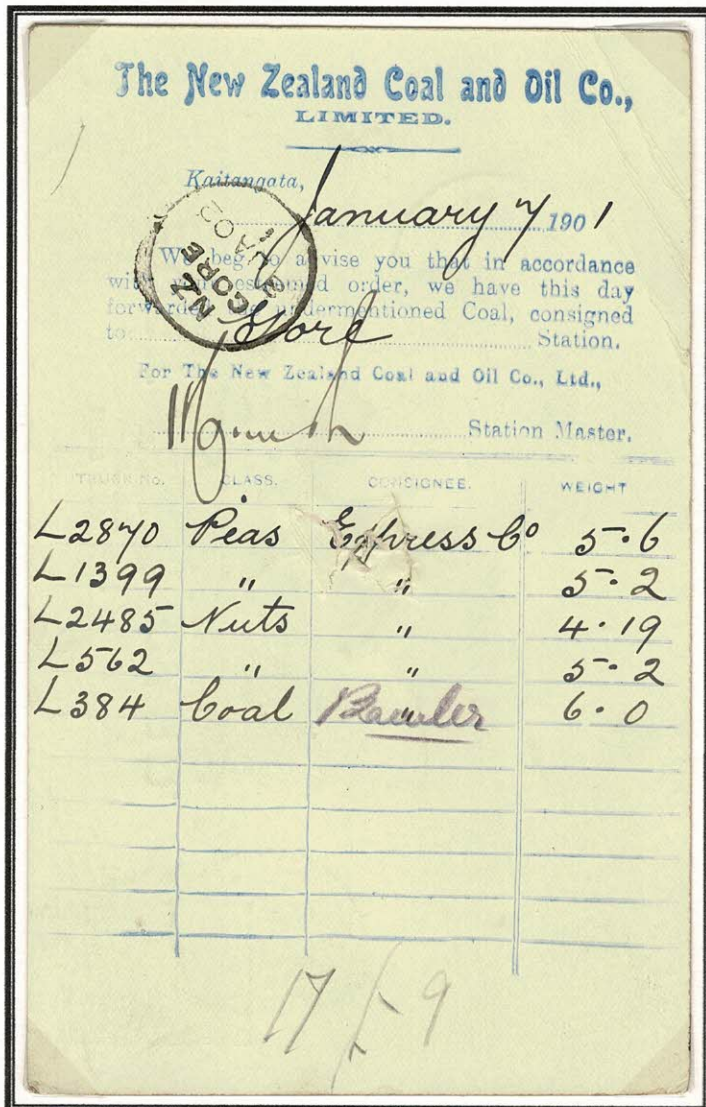 The New Zealand Coal and Oil Co.,
LIMITED.
Kaitangata,
January 7 1901
NZ
GORE
JA 02
We beg to advise you that in accordance
with your esteemed order, we have this day
forwarded the undermentioned Coal, consigned
to Gore Station.
For The New Zealand Coal and Oil Co., Ltd.,
Station Master.
TRUCK No. CLASS. CONSIGNEE. WEIGHT
L2870 Peas Express Co 5·6
L1399 " " 5·2
L2485 Nuts " 4·19
L562 " " 5·2
L384 Coal " 6·0